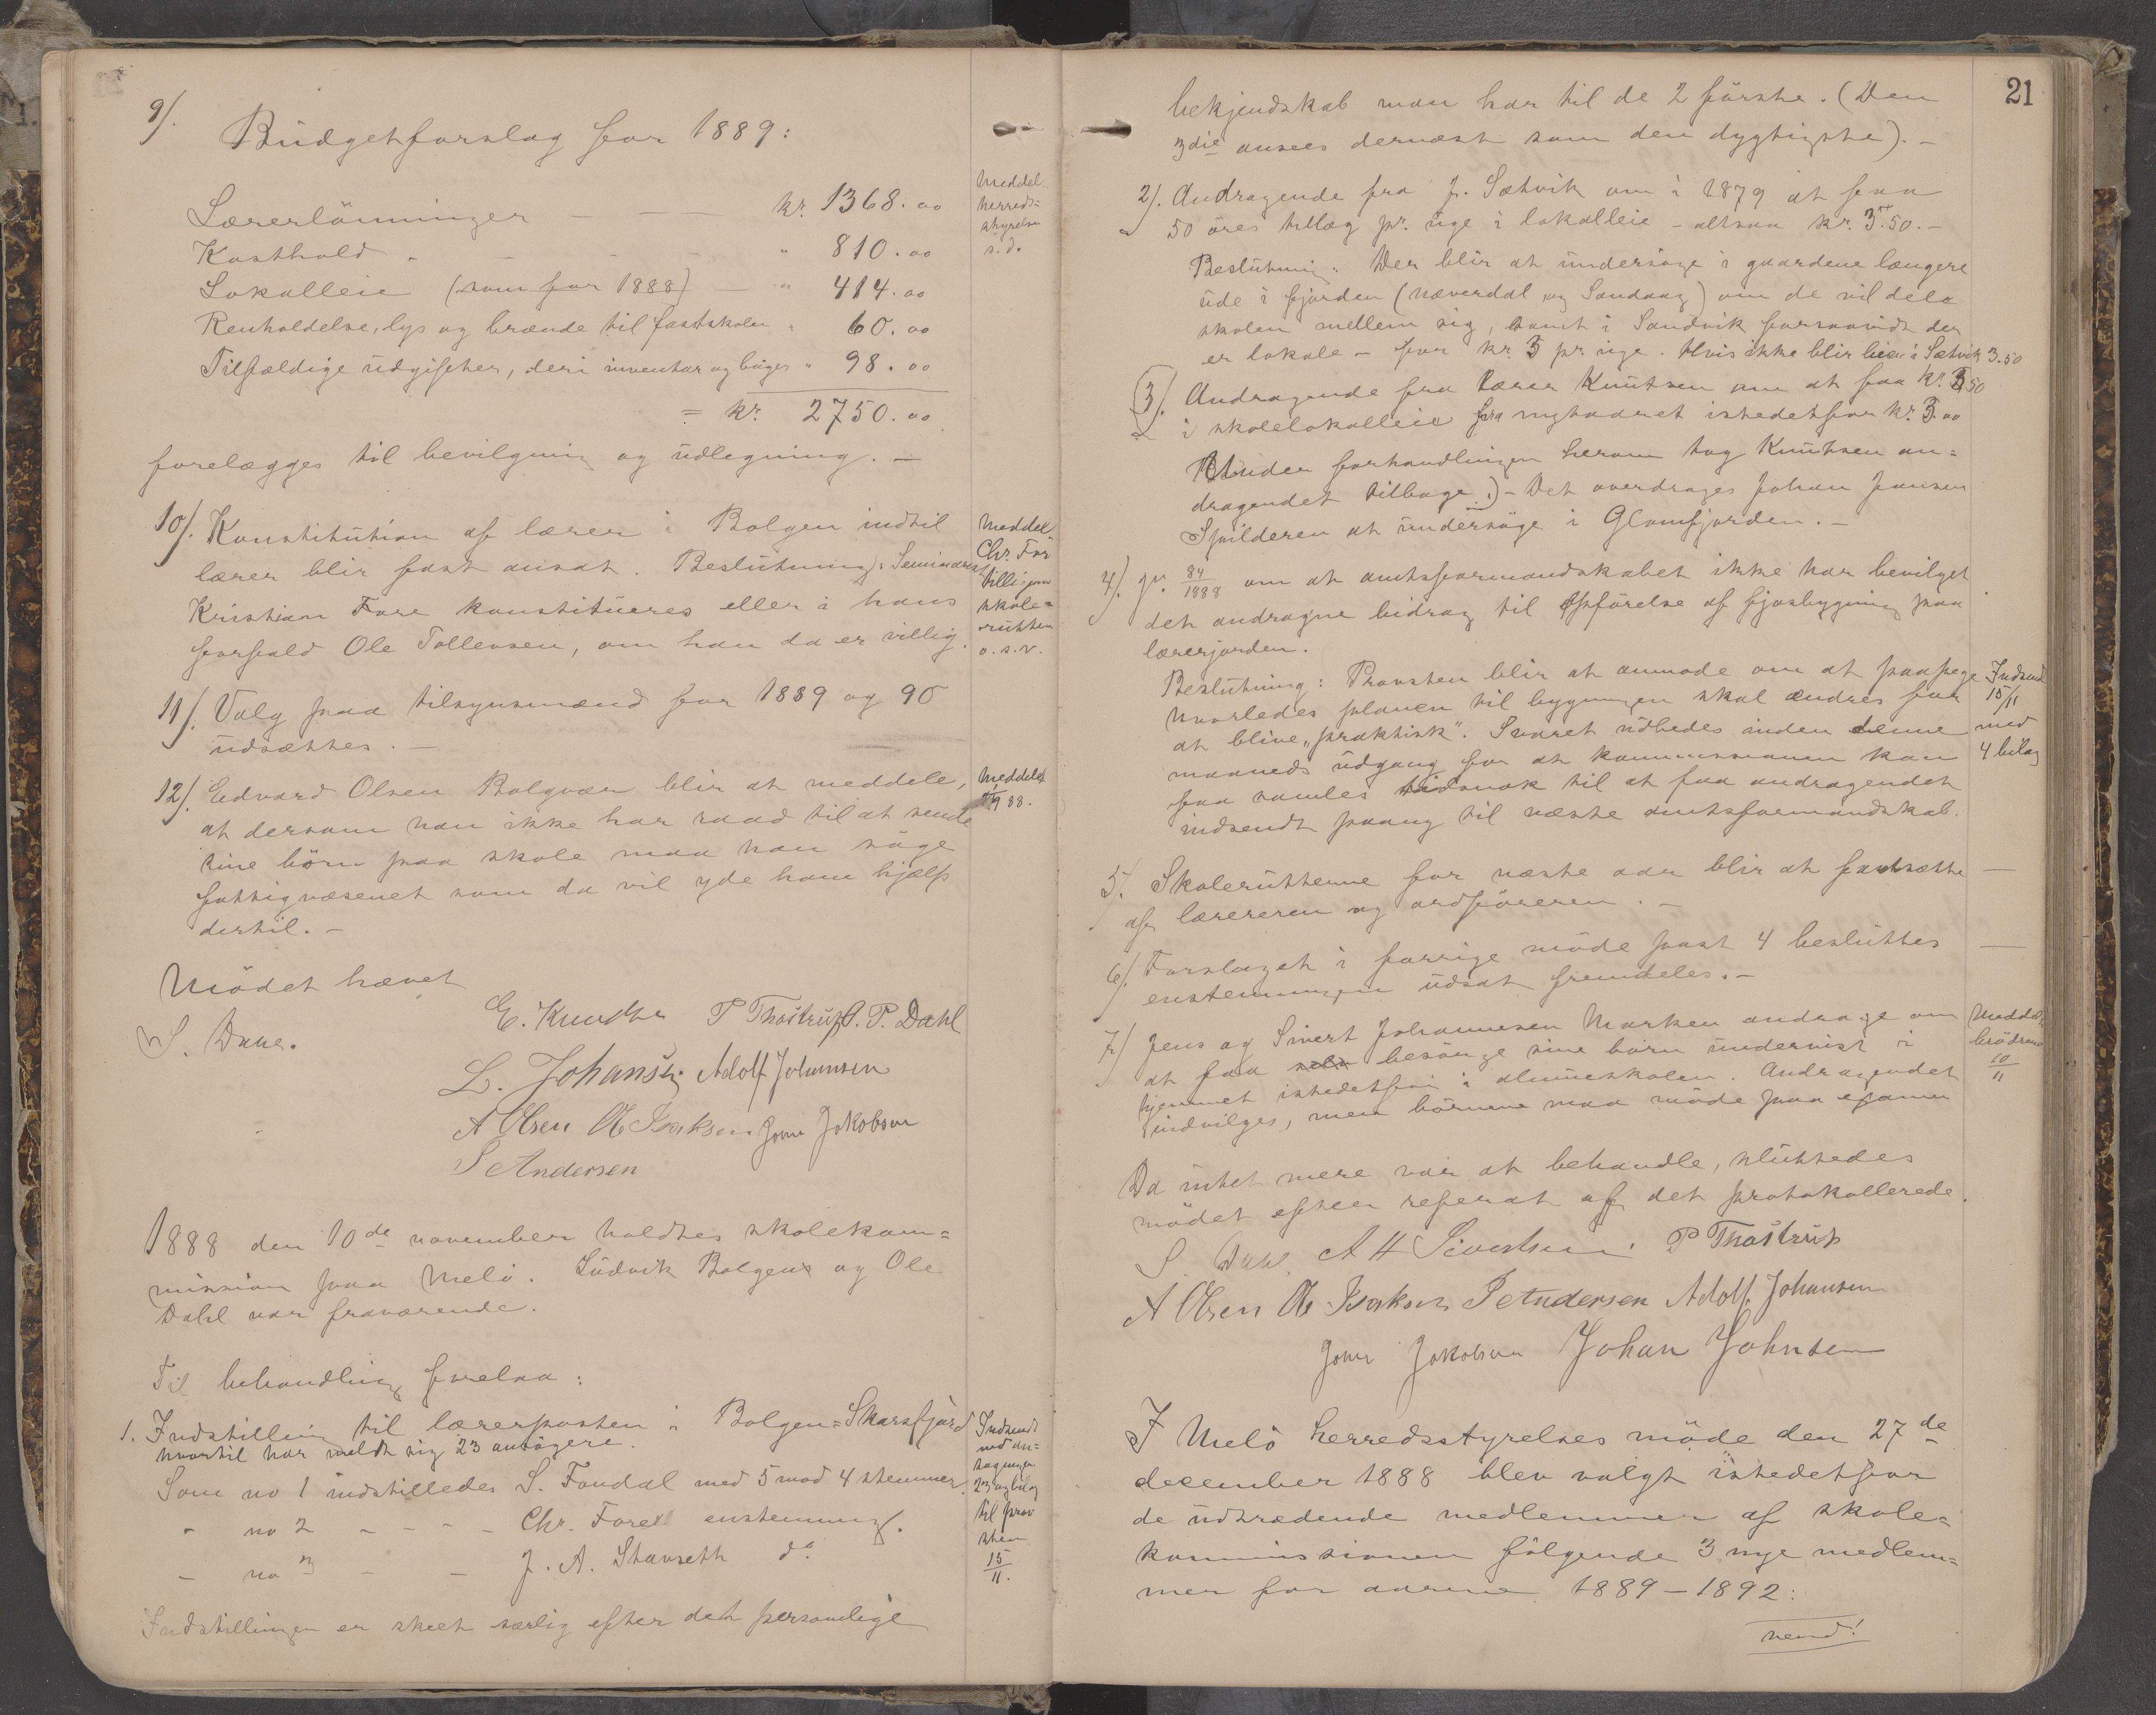 9/. Budgetforslag for 1889:
Lærerlönninger — — kr. 1368.00
Kosthold - - - " 810.00
Lokalleie (som for 1888) — " 414.00
Renholdelse, lys og brænde til fastskolen " 60.00
Tilfældige udgifter, deri inventar og bøger " 98.00
= kr. 2750.00
Meddel.
herreds=
styrelsen
s. d.
forelægges til bevilgning og udlegning. —
10/. Konstitution af lærer i Bolgen indtil
lærer blir fast ansat. Beslutning: Seminarist
Kristian Fore konstitueres eller i hans
forfald Ole Tollevsen, om han da er villig.
Meddel.
Chr. For
tilligem
skole=
rutten
o.s.v.
11/. Valg paa tilsynsmænd for 1889 og 90
udsættes. —
12/. Edvard Olsen Bolgvær blir at meddele,
at dersom han ikke har raad til at sende
sine börn paa skole maa han söge
fattigvæsenet som da vil yde ham hjælp
dertil. —
Meddelt
88.
Mödet hævet
S. Dahl. E. Knudtsen P Thostrup O. P. Dahl
L. Johansen Adolf Johansen
A Olsen Ole Isaksen Johan Jakobsen
S Andersen
1888 den 10de november holdtes skolekom=
mission paa Melö. Ludvik Bolgen og Ole
Dahl var fraværende.
Til behandling forelaa:
1. Indstilling til lærerposten i Bolgen=Skarsfjord
hvortil har meldt sig 23 ansögere.
Som no 1 indstilledes S. Fondal med 5 mod 4 stemmer.
- no 2 - - - - Chr. Fore enstemmig.
- no 3 - - J. A. Stavseth do
Indsendt
med an=
sögninger
23 og bilag
til prov
sten
15/11.
Indstillingen er skeet særlig efter det personlige
21
bekjendskab man har til de 2 förste. (Den
3die ansees dernæst som den dygtigste). —
2/. Andragende fra J. Sætvik om i 1879 at faa
50 öres tillæg pr. uge i lokalleie - altsaa kr. 3.50. —
Beslutning: Der blir at undersöge i gaardene længere
ude i fjorden (Næverdal og Sandaag) om de vil dele
skolen mellem sig, samt i Sandvik forsaavidt der
er lokale - for kr. 3 pr. uge. Hvis ikke blir leien i Sætvik 3.50
3/. Andragende fra lærer Knutsen om at faa kr. 3.50
i skolelokalleie fra nytaaret istedetfor kr. 3.00
Under forhandlingen herom tog Knutsen an=
dragendet tilbage.) - Det overdrages Johan Jansen
Spilderen at undersöge i Glomfjorden. —
4/. jr. 84/1888 om at amtsformandskabet ikke har bevilget
det andragne bidrag til opförelse af fjosbygning paa
lærerjorden.
Beslutning: Provsten blir at anmode om at paapege
hvorledes planen til bygningen skal ændres for
at blive „praktisk“. Svaret udbedes inden denne
maaneds udgang for at kommissionen kan
faa samles tidsnok til at faa andragendet
indsendt paany til næste amtsformandskab.
Indsend
15/11
med
4 bilag
5/. Skolerutterne for næste aar blir at fastsætte —
af læreren og ordföreren. —
6/. Forslaget i forrige möde post 4 besluttes —
enstemmigen udsat fremdeles. —
7/. Jens og Sivert Johannesen Marken androge om
at faa selv besörge sine börn undervist i
hjemmet istedetfor i almueskolen. Andragendet
indvilges, men börnene maa möde paa examen
Meddel.
brödrene
10/11
Da intet mere var at behandle, sluttedes
mödet efter referat af det protokollerede.
S. Dahl. A H Sivertsen. P Thostrup
A Olsen Ole Isaksen S Andersen Adolf Johansen
Johan Jakobsen Johan Johnsen
I Melö herredsstyrelses möde den 27de
december 1888 blev valgt istedetfor
de udtrædende medlemmer af skole=
kommissionen fölgende 3 nye medlem=
mer for aarene 1889-1892:
vend!